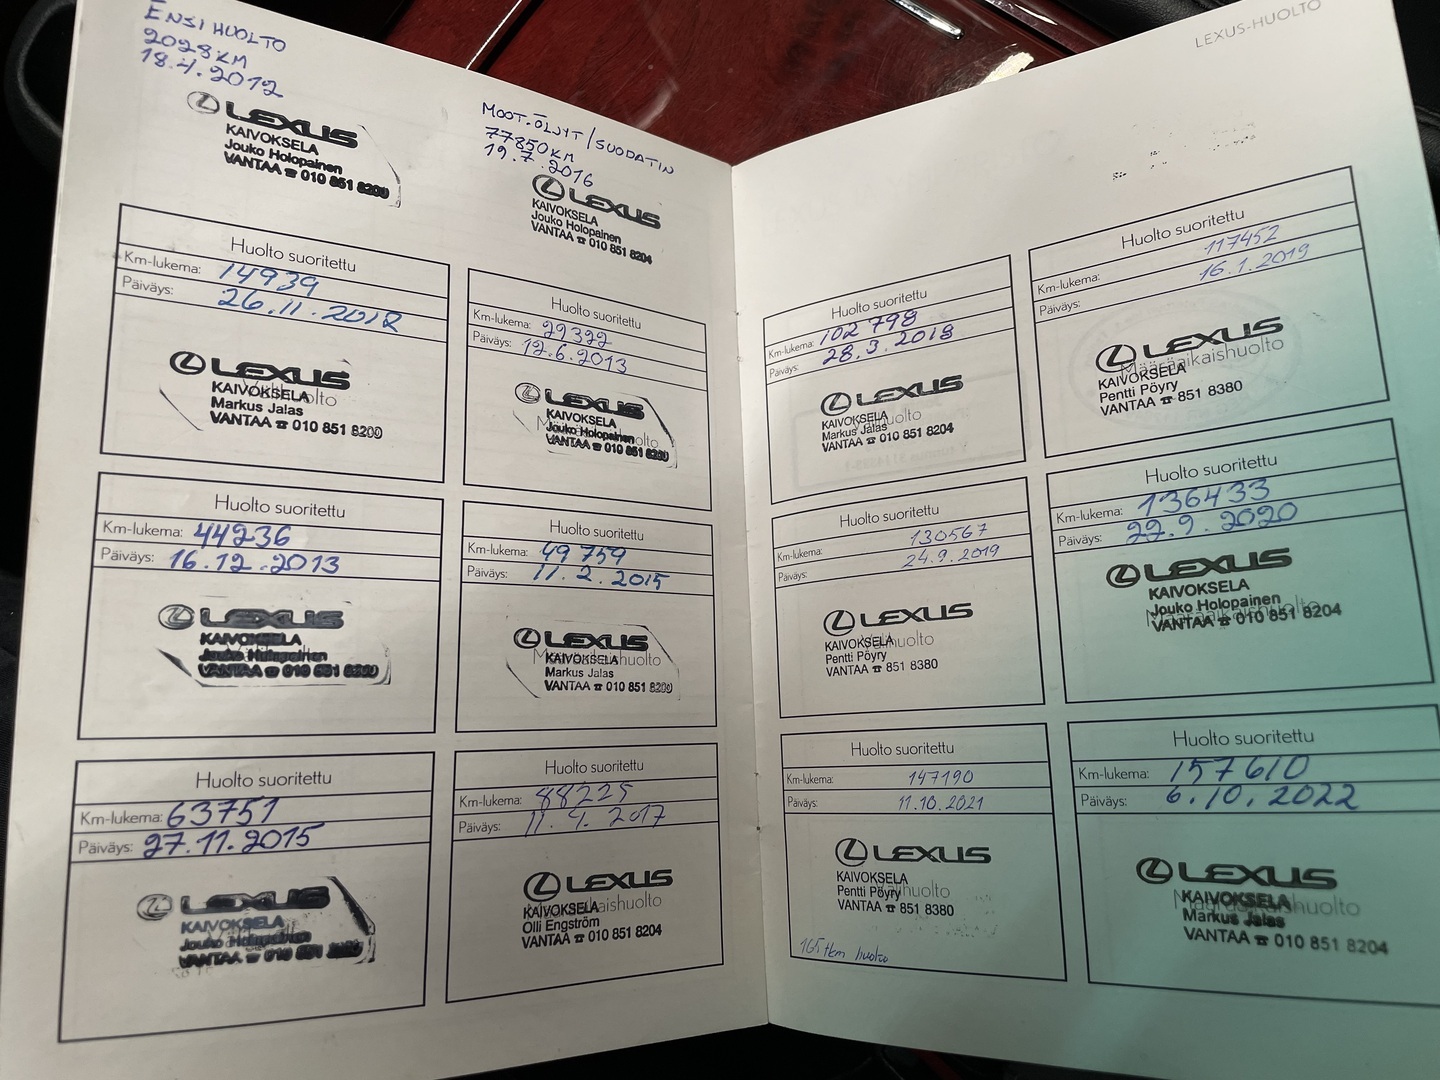 ENSIHUOLTO
2028KM
18.4.2012
LEXUS
KAIVOKSELA
Jouko Holopainen
VANTAA ☎ 010 851 8200
MOOT.ÖLJYT/SUODATIN
77850KM
19.7.2016
LEXUS
KAIVOKSELA
Jouko Holopainen
VANTAA ☎ 010 851 8204
Huolto suoritettu
Km-lukema: 14939
Päiväys: 26.11.2012
LEXUS
KAIVOKSELA
Markus Jalas
VANTAA ☎ 010 851 8200
Huolto suoritettu
Km-lukema: 29322
Päiväys: 12.6.2013
LEXUS
KAIVOKSELA
Jouko Holopainen
VANTAA ☎ 010 851 8200
Huolto suoritettu
Km-lukema: 44236
Päiväys: 16.12.2013
LEXUS
KAIVOKSELA
Jouko Holopainen
VANTAA ☎ 010 851 8200
Huolto suoritettu
Km-lukema: 49759
Päiväys: 11.2.2015
LEXUS
Määräaikaishuolto
KAIVOKSELA
Markus Jalas
VANTAA ☎ 010 851 8200
Huolto suoritettu
Km-lukema: 63751
Päiväys: 27.11.2015
LEXUS
KAIVOKSELA
Jouko Holopainen
VANTAA ☎ 010 851 8200
Huolto suoritettu
Km-lukema: 88225
Päiväys: 11.4.2017
LEXUS
Määräaikaishuolto
KAIVOKSELA
Olli Engström
VANTAA ☎ 010 851 8204
LEXUS-HUOLTO
Huolto suoritettu
Km-lukema: 102798
Päiväys: 28.3.2018
LEXUS
KAIVOKSELA
Välihuolto
Markus Jalas
VANTAA ☎ 010 851 8204
Huolto suoritettu
Km-lukema: 117452
Päiväys: 16.1.2019
LEXUS
Määräaikaishuolto
KAIVOKSELA
Pentti Pöyry
VANTAA ☎ 851 8380
Huolto suoritettu
Km-lukema: 130567
Päiväys: 24.9.2019
LEXUS
KAIVOKSELA
Välihuolto
Pentti Pöyry
VANTAA ☎ 851 8380
Huolto suoritettu
Km-lukema: 136433
Päiväys: 22.9.2020
LEXUS
KAIVOKSELA
Jouko Holopainen
Määräaikaishuolto
VANTAA ☎ 010 851 8204
Huolto suoritettu
Km-lukema: 147190
Päiväys: 11.10.2021
LEXUS
KAIVOKSELA
Välihuolto
Pentti Pöyry
VANTAA ☎ 851 8380
165tkm huolto
Huolto suoritettu
Km-lukema: 157610
Päiväys: 6.10.2022
LEXUS
KAIVOKSELA
Määräaikaishuolto
Markus Jalas
VANTAA ☎ 010 851 8204